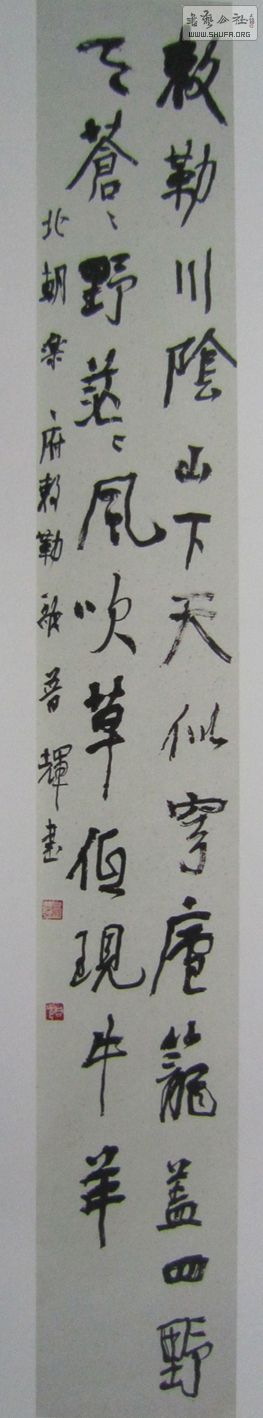 敕勒川陰山下天似穹廬籠盖四野
天蒼〻野茫〻風吹草低現牛羊
北朝樂府敕勒歌 晉輝書
書藝公社
WWW.SHUFA.ORG